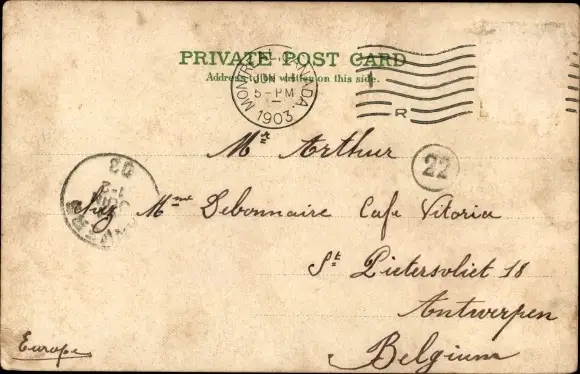 PRIVATE POST CARD
Address to be written on this side.
MONTREAL, CANADA.
JUN
5-PM
1903
R
Mr Arthur
22
chez Mme Debonnaire Cafe Vitoria
St Pietersvliet 18
Antwerpen
Belgium
Europe
03